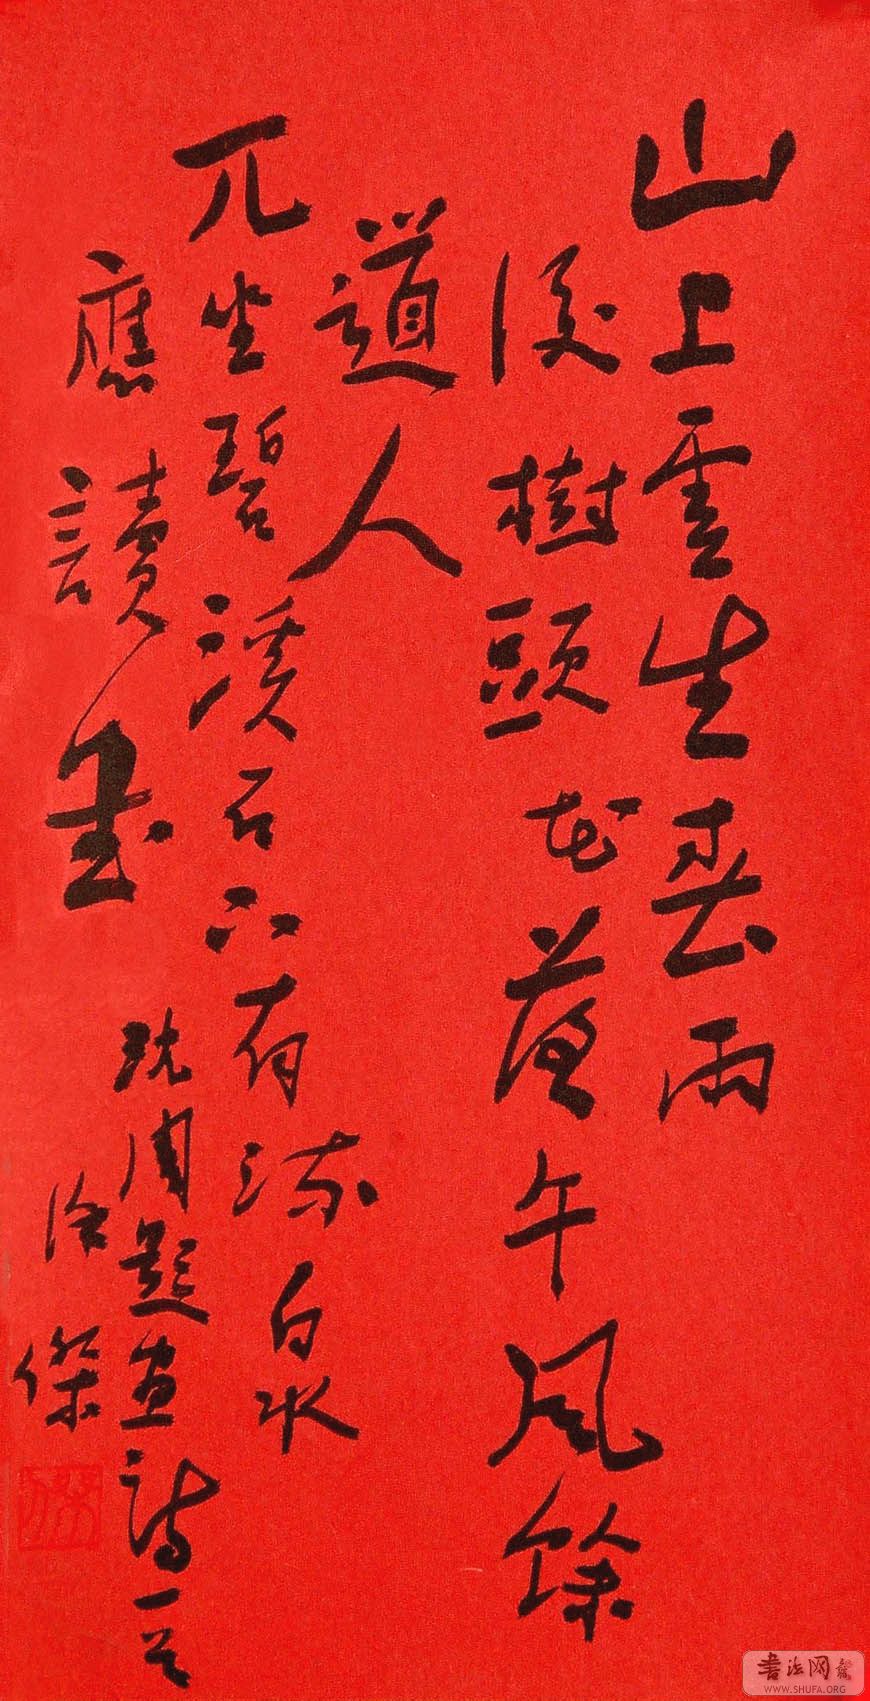 山上雲生春雨
後樹頭花落午風餘
道人
兀坐碧溪石不有流泉
應讀書
沈周題畫詩一首
傑
書法网
WWW.SHUFA.ORG